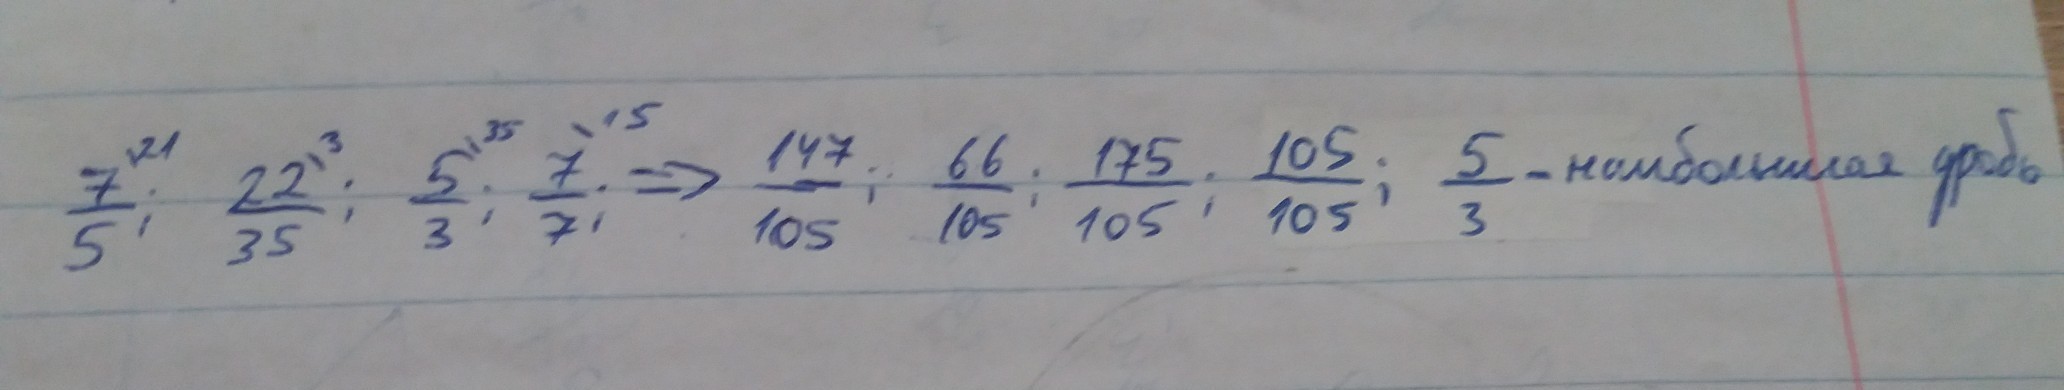 7/5; 22/35; 5/3; 7/7; => 147/105; 66/105; 175/105; 105/105; 5/3 - наибольшая дробь